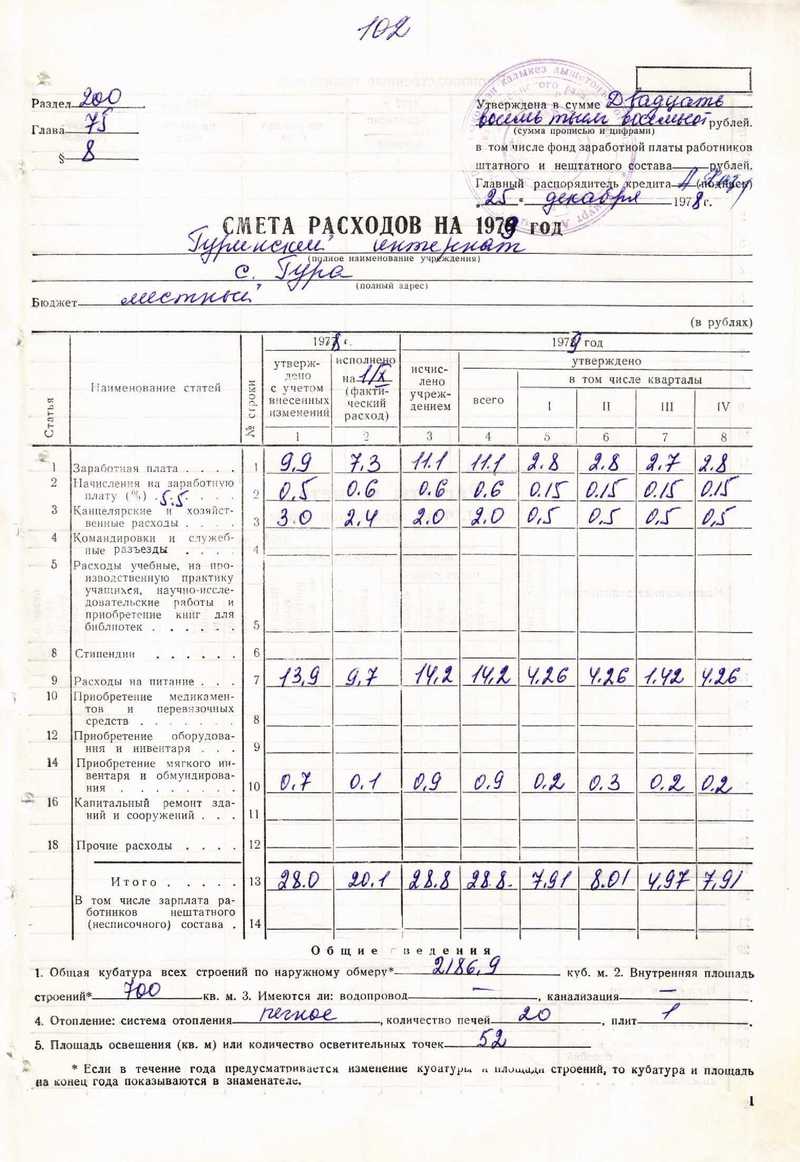 102
Раздел 200
Глава 75
§ 8
Утверждена в сумме Двадцать
восемь тысяч восемьсот рублей.
(сумма прописью и цифрами)
в том числе фонд заработной платы работников
штатного и нештатного состава рублей.
Главный распорядитель кредита (подпись)
„25" декабря 1978 г.
СМЕТА РАСХОДОВ НА 1979 год
Гуринский интернат
(полное наименование учреждения)
с. Гура
(полный адрес)
Бюджет местный
(в рублях)
Статья
Наименование статей
№ строки
1978 г.
1979 год
утверждено с учетом внесенных изменений
исполнено на 1/IX (фактический расход)
исчислено учреждением
утверждено
всего
в том числе кварталы
I II III IV
1 2 3 4 5 6 7 8
1 Заработная плата . . . . 1 9,9 7,3 11.1 11.1 2.8 2.8 2.7 2.8
2 Начисления на заработную
плату (%) 5,5 . . . 2 0,5 0.6 0.6 0.6 0.15 0.15 0.15 0.15
3 Канцелярские и хозяйст-
венные расходы . . . . 3 3.0 2,4 2.0 2.0 0,5 0.5 0.5 0,5
4 Командировки и служеб-
ные разъезды . . . . 4
5 Расходы учебные, на про-
изводственную практику
учащихся, научно-иссле-
довательские работы и
приобретение книг для
библиотек . . . . . . 5
8 Стипендии . . . . . . 6
9 Расходы на питание . . . 7 13,9 9,7 14,2 14,2 4.26 4.26 1.42 4.26
10 Приобретение медикамен-
тов и перевязочных
средств . . . . . . . 8
12 Приобретение оборудова-
ния и инвентаря . . . 9
14 Приобретение мягкого ин-
вентаря и обмундирова-
ния . . . . . . . . 10 0,7 0.1 0,9 0.9 0.2 0.3 0.2 0.2
16 Капитальный ремонт зда-
ний и сооружений . . . 11
18 Прочие расходы . . . . 12
Итого . . . . . 13 28.0 20.1 28.8 28.8. 7.91 8.01 4,97 7,91
В том числе зарплата ра-
ботников нештатного
(несписочного) состава . 14
Общие сведения
1. Общая кубатура всех строений по наружному обмеру* 2186,9 куб. м. 2. Внутренняя площадь
строений* 700 кв. м. 3. Имеются ли: водопровод —, канализация —.
4. Отопление: система отопления печное, количество печей 20, плит 1.
5. Площадь освещения (кв. м) или количество осветительных точек 52
* Если в течение года предусматривается изменение кубатуры и площади строений, то кубатура и площадь
на конец года показываются в знаменателе.
1